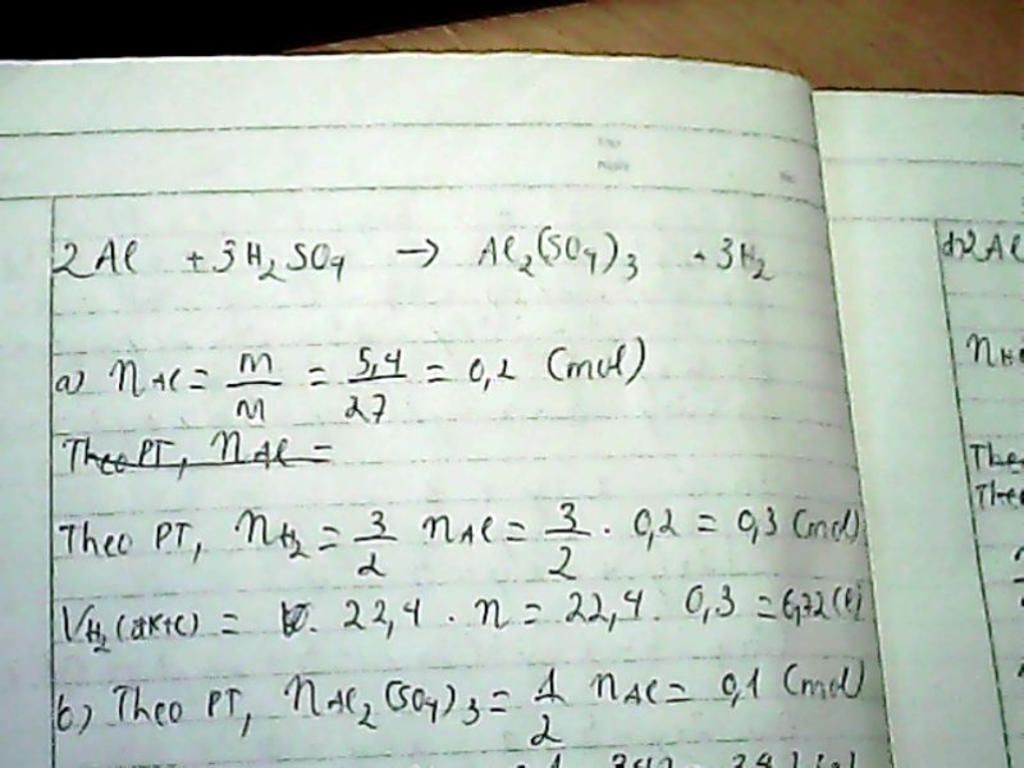 2Al + 3H₂SO₄ → Al₂(SO₄)₃ + 3H₂
a) nAl = m/M = 5,4/27 = 0,2 (mol)
Theo PT, nAl =
Theo PT, nH₂ = 3/2 nAl = 3/2 . 0,2 = 0,3 (mol)
VH₂(đktc) = 22,4 . n = 22,4 . 0,3 = 6,72 (l)
b) Theo PT, nAl₂(SO₄)₃ = 1/2 nAl = 0,1 (mol)
2Al